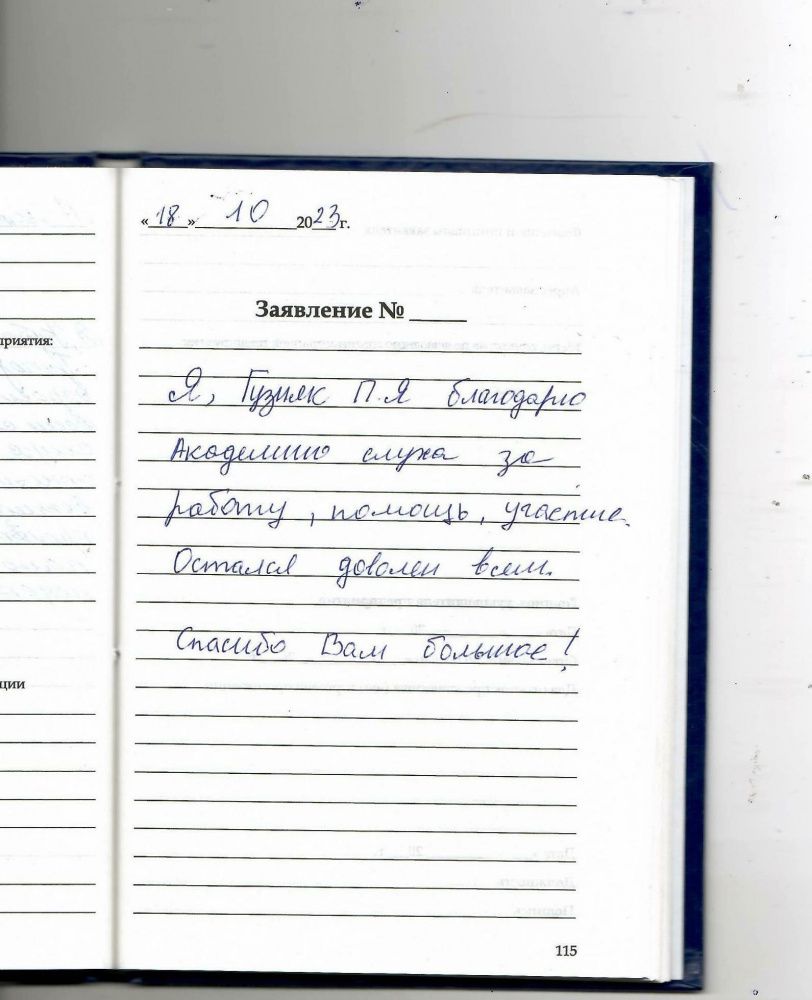 «18» 10 2023г.
Заявление №
Я, Гузияк П.Я благодарю
Академию слуха за
работу, помощь, участие.
Остался доволен всем.
Спасибо Вам большое!
приятия:
ции
115